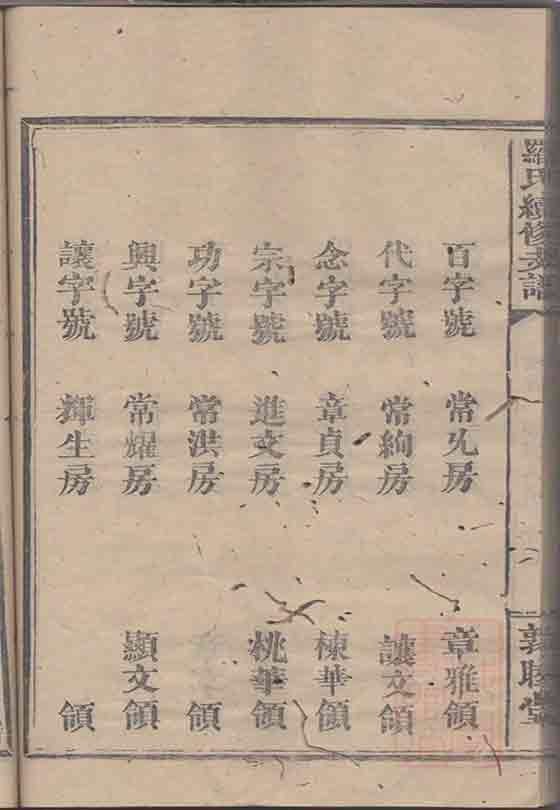 羅氏續修支譜
敦睦堂
百字號 常允房 章雅領
代字號 常絢房 讓文領
念字號 章貞房 棟華領
宗字號 進文房 桃華領
功字號 常洪房 領
興字號 常耀房 顯文領
讓字號 輝生房 領